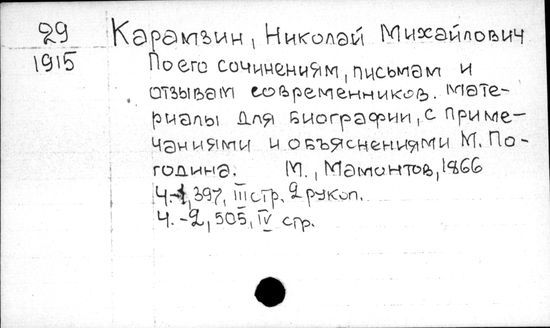 29 Карамзин, Николай Михайлович
1915 По его сочинениям, письмам и
отзывам современников. Мате-
риалы для биографии, с приме-
чаниями и объяснениями М. По-
година. М., Мамонтов, 1866
Ч.-1, 397, III стр. 2 рукоп.
Ч.-2, 505, IV стр.